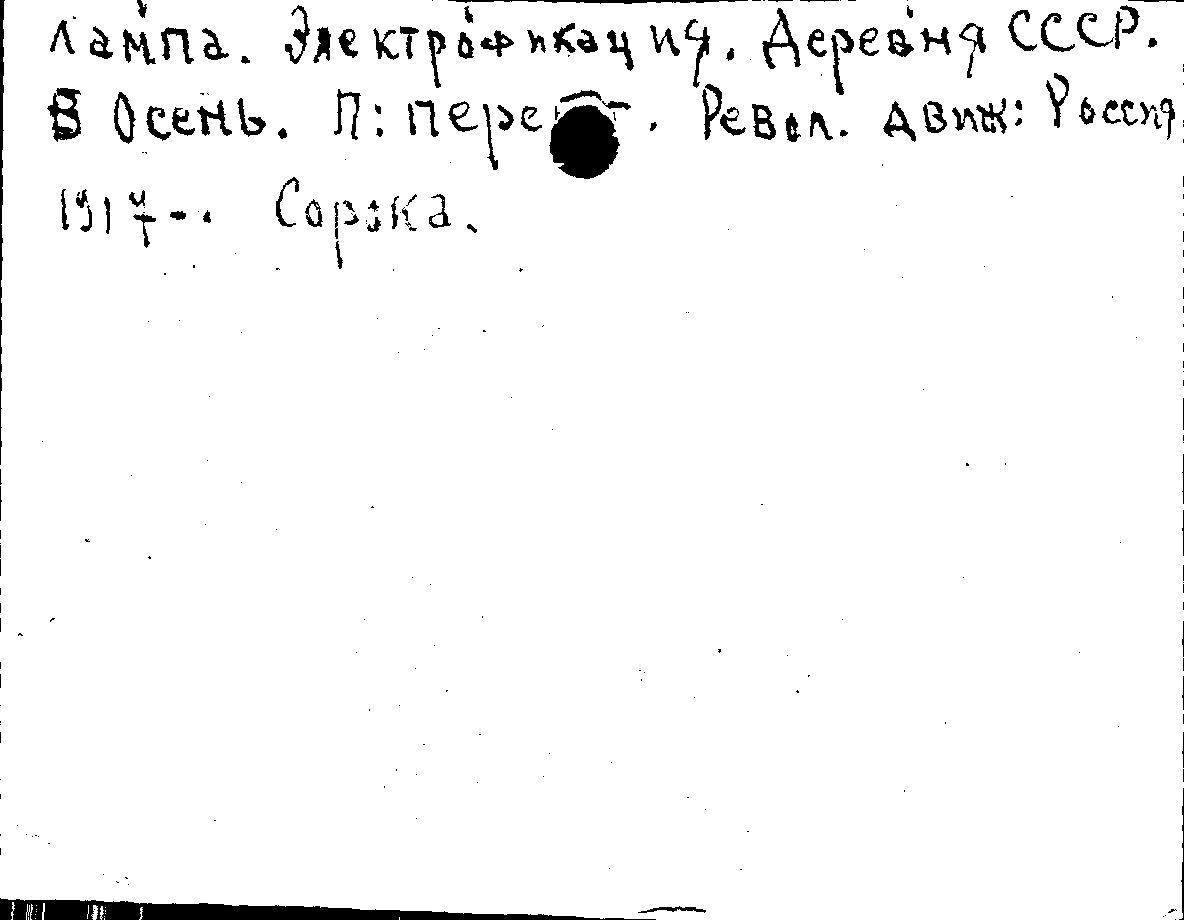 Лампа. Электрофикация. Деревня СССР.
В Осень. П: Революция. движ: Россия
1917-. Сорока.